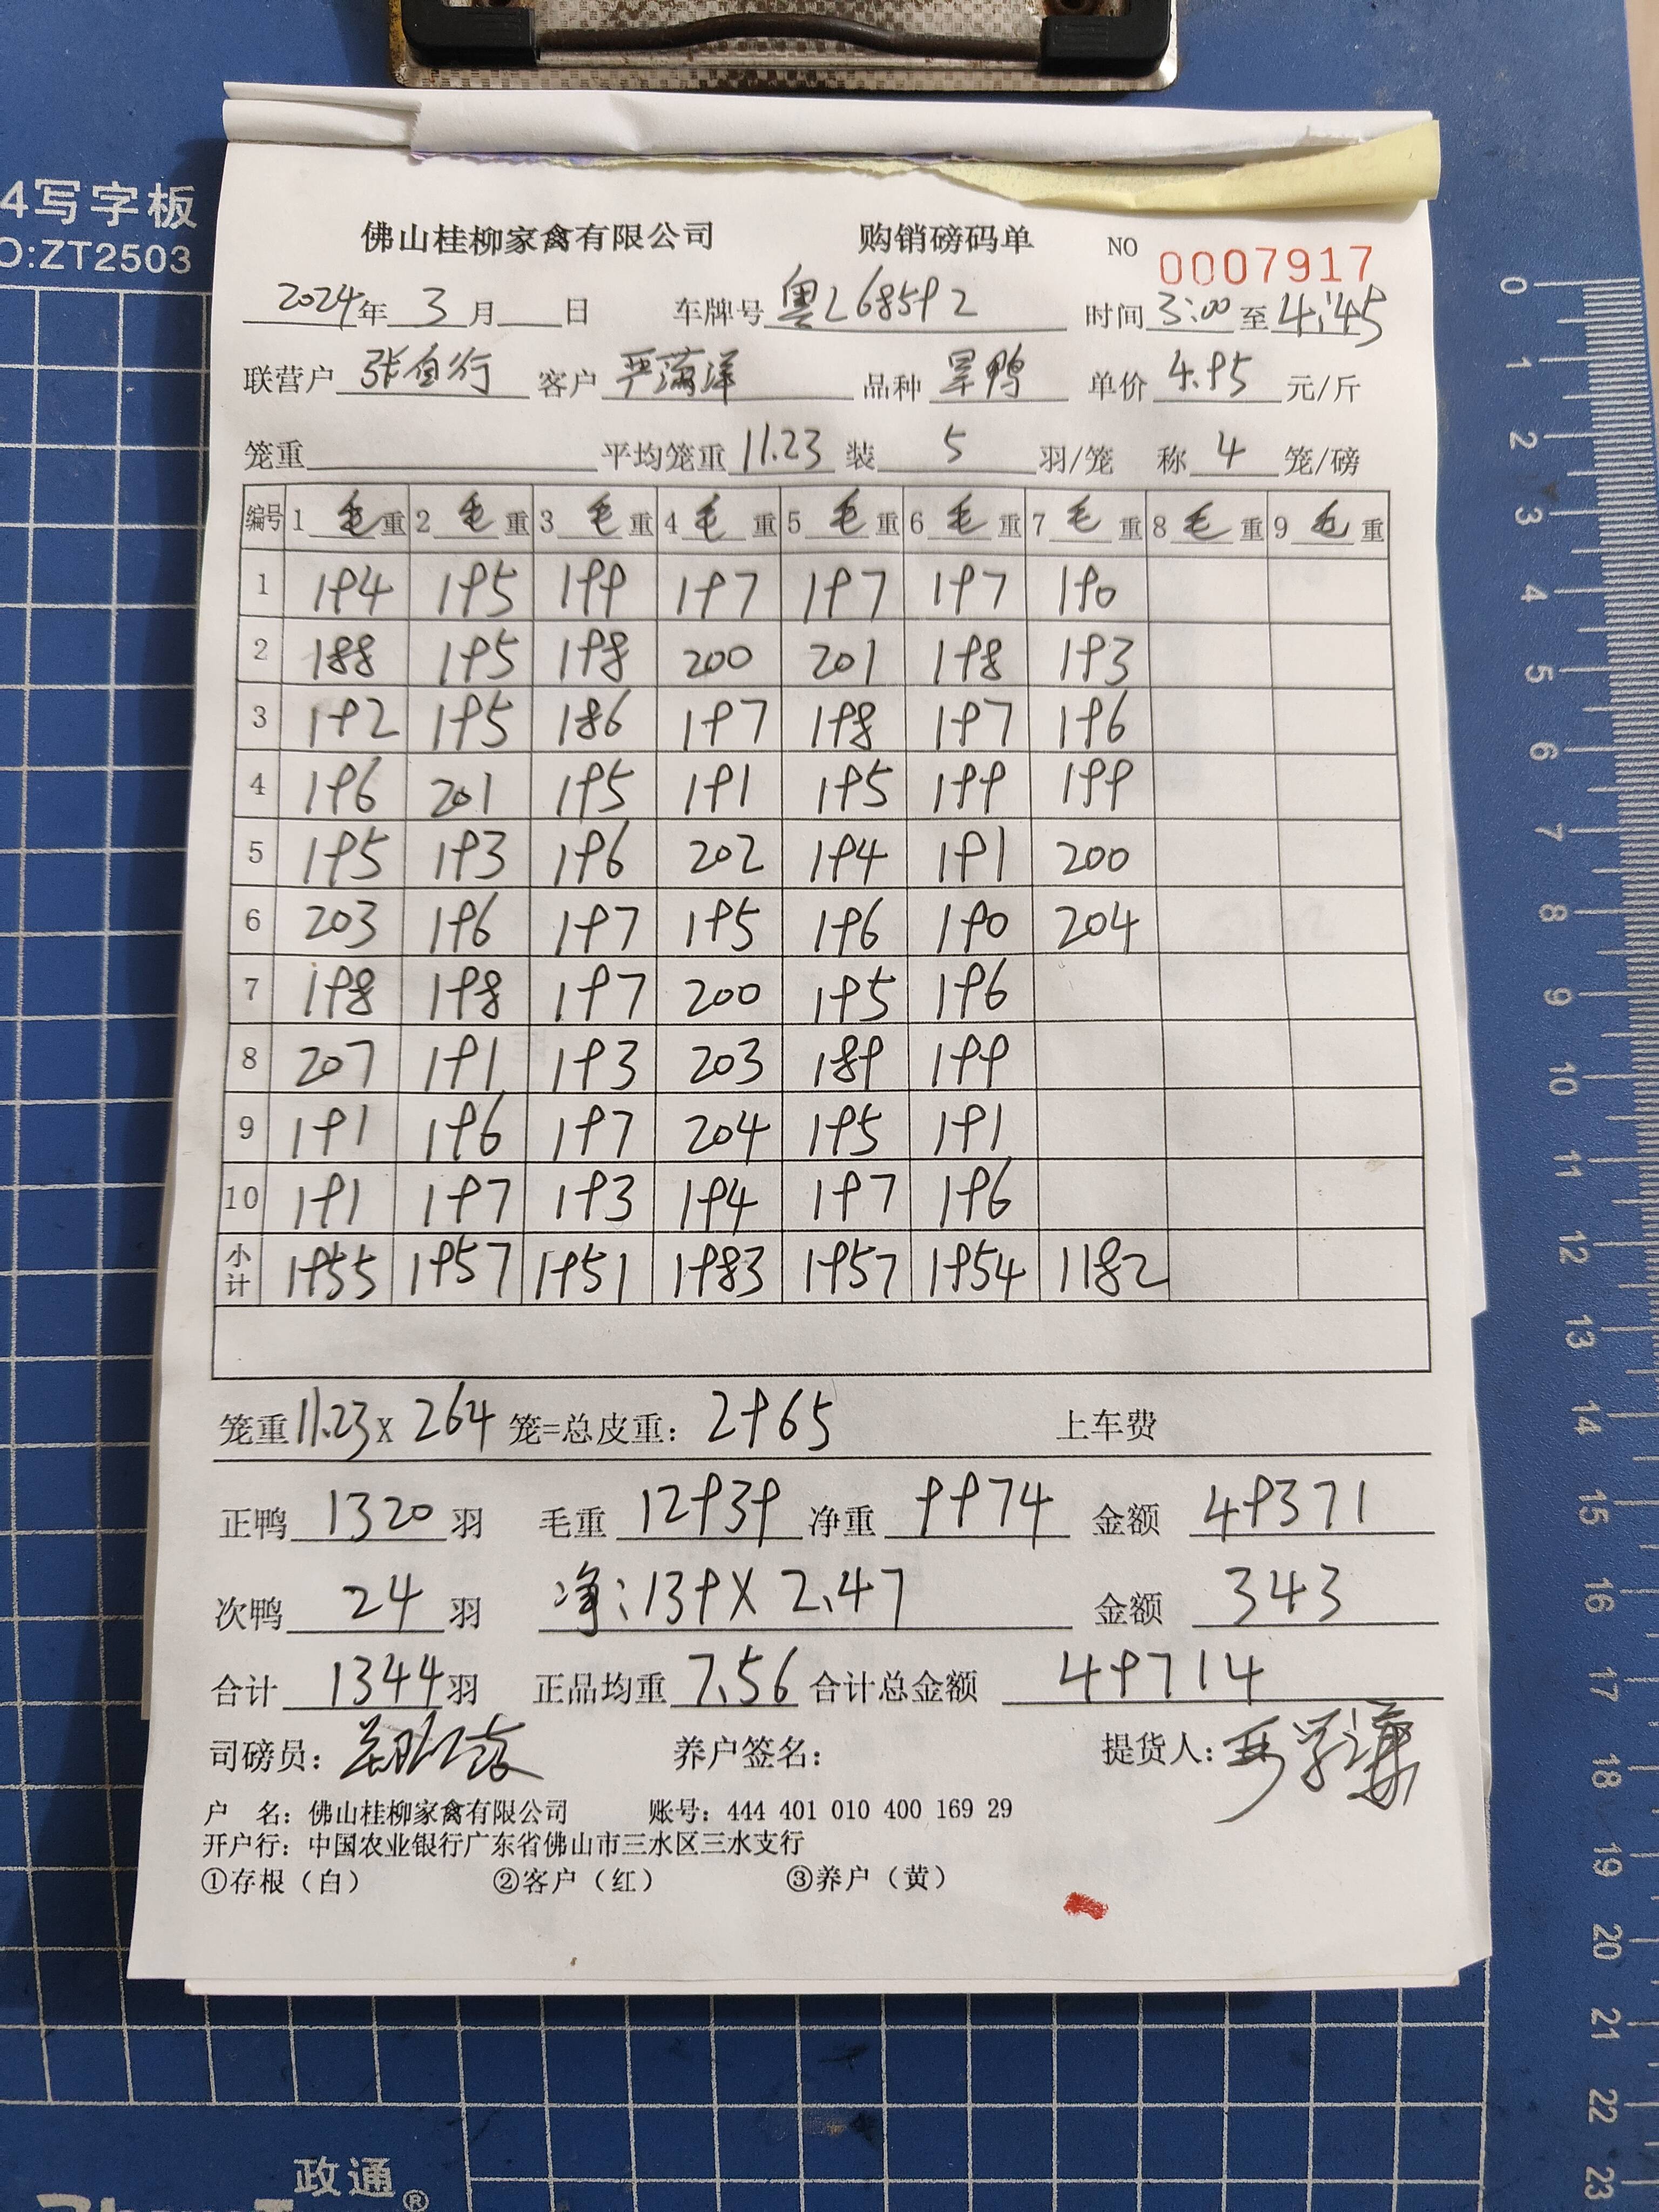 4写字板
O:ZT2503
佛山桂柳家禽有限公司 购销磅码单 NO 0007917
2024年 3月 日 车牌号 粤L68592 时间 3:00 至 4:45
联营户 张自行 客户 严满洋 品种 旱鸭 单价 4.95 元/斤
笼重 平均笼重 11.23 装 5 羽/笼 称 4 笼/磅
编号 1 毛重 2 毛重 3 毛重 4 毛重 5 毛重 6 毛重 7 毛重 8 毛重 9 毛重
1 194 195 199 197 197 197 190
2 188 195 198 200 201 198 193
3 192 195 186 197 198 197 196
4 196 201 195 191 195 199 199
5 195 193 196 202 194 191 200
6 203 196 197 195 196 190 204
7 198 198 197 200 195 196
8 207 191 193 203 189 199
9 191 196 197 204 195 191
10 191 197 193 194 197 196
小计 1955 1957 1951 1983 1957 1954 1182
笼重 11.23 x 264 笼=总皮重: 2965 上车费
正鸭 1320 羽 毛重 12939 净重 9974 金额 49371
次鸭 24 羽 净:139X 2.47 金额 343
合计 1344羽 正品均重 7.56 合计总金额 49714
司磅员: 养户签名: 提货人:
户 名: 佛山桂柳家禽有限公司 账号: 444 401 010 400 169 29
开户行: 中国农业银行广东省佛山市三水区三水支行
①存根(白) ②客户(红) ③养户(黄)
0
1
2
3
4
5
6
7
8
9
10
11
12
13
14
15
16
17
18
19
20
21
22
23
政通®